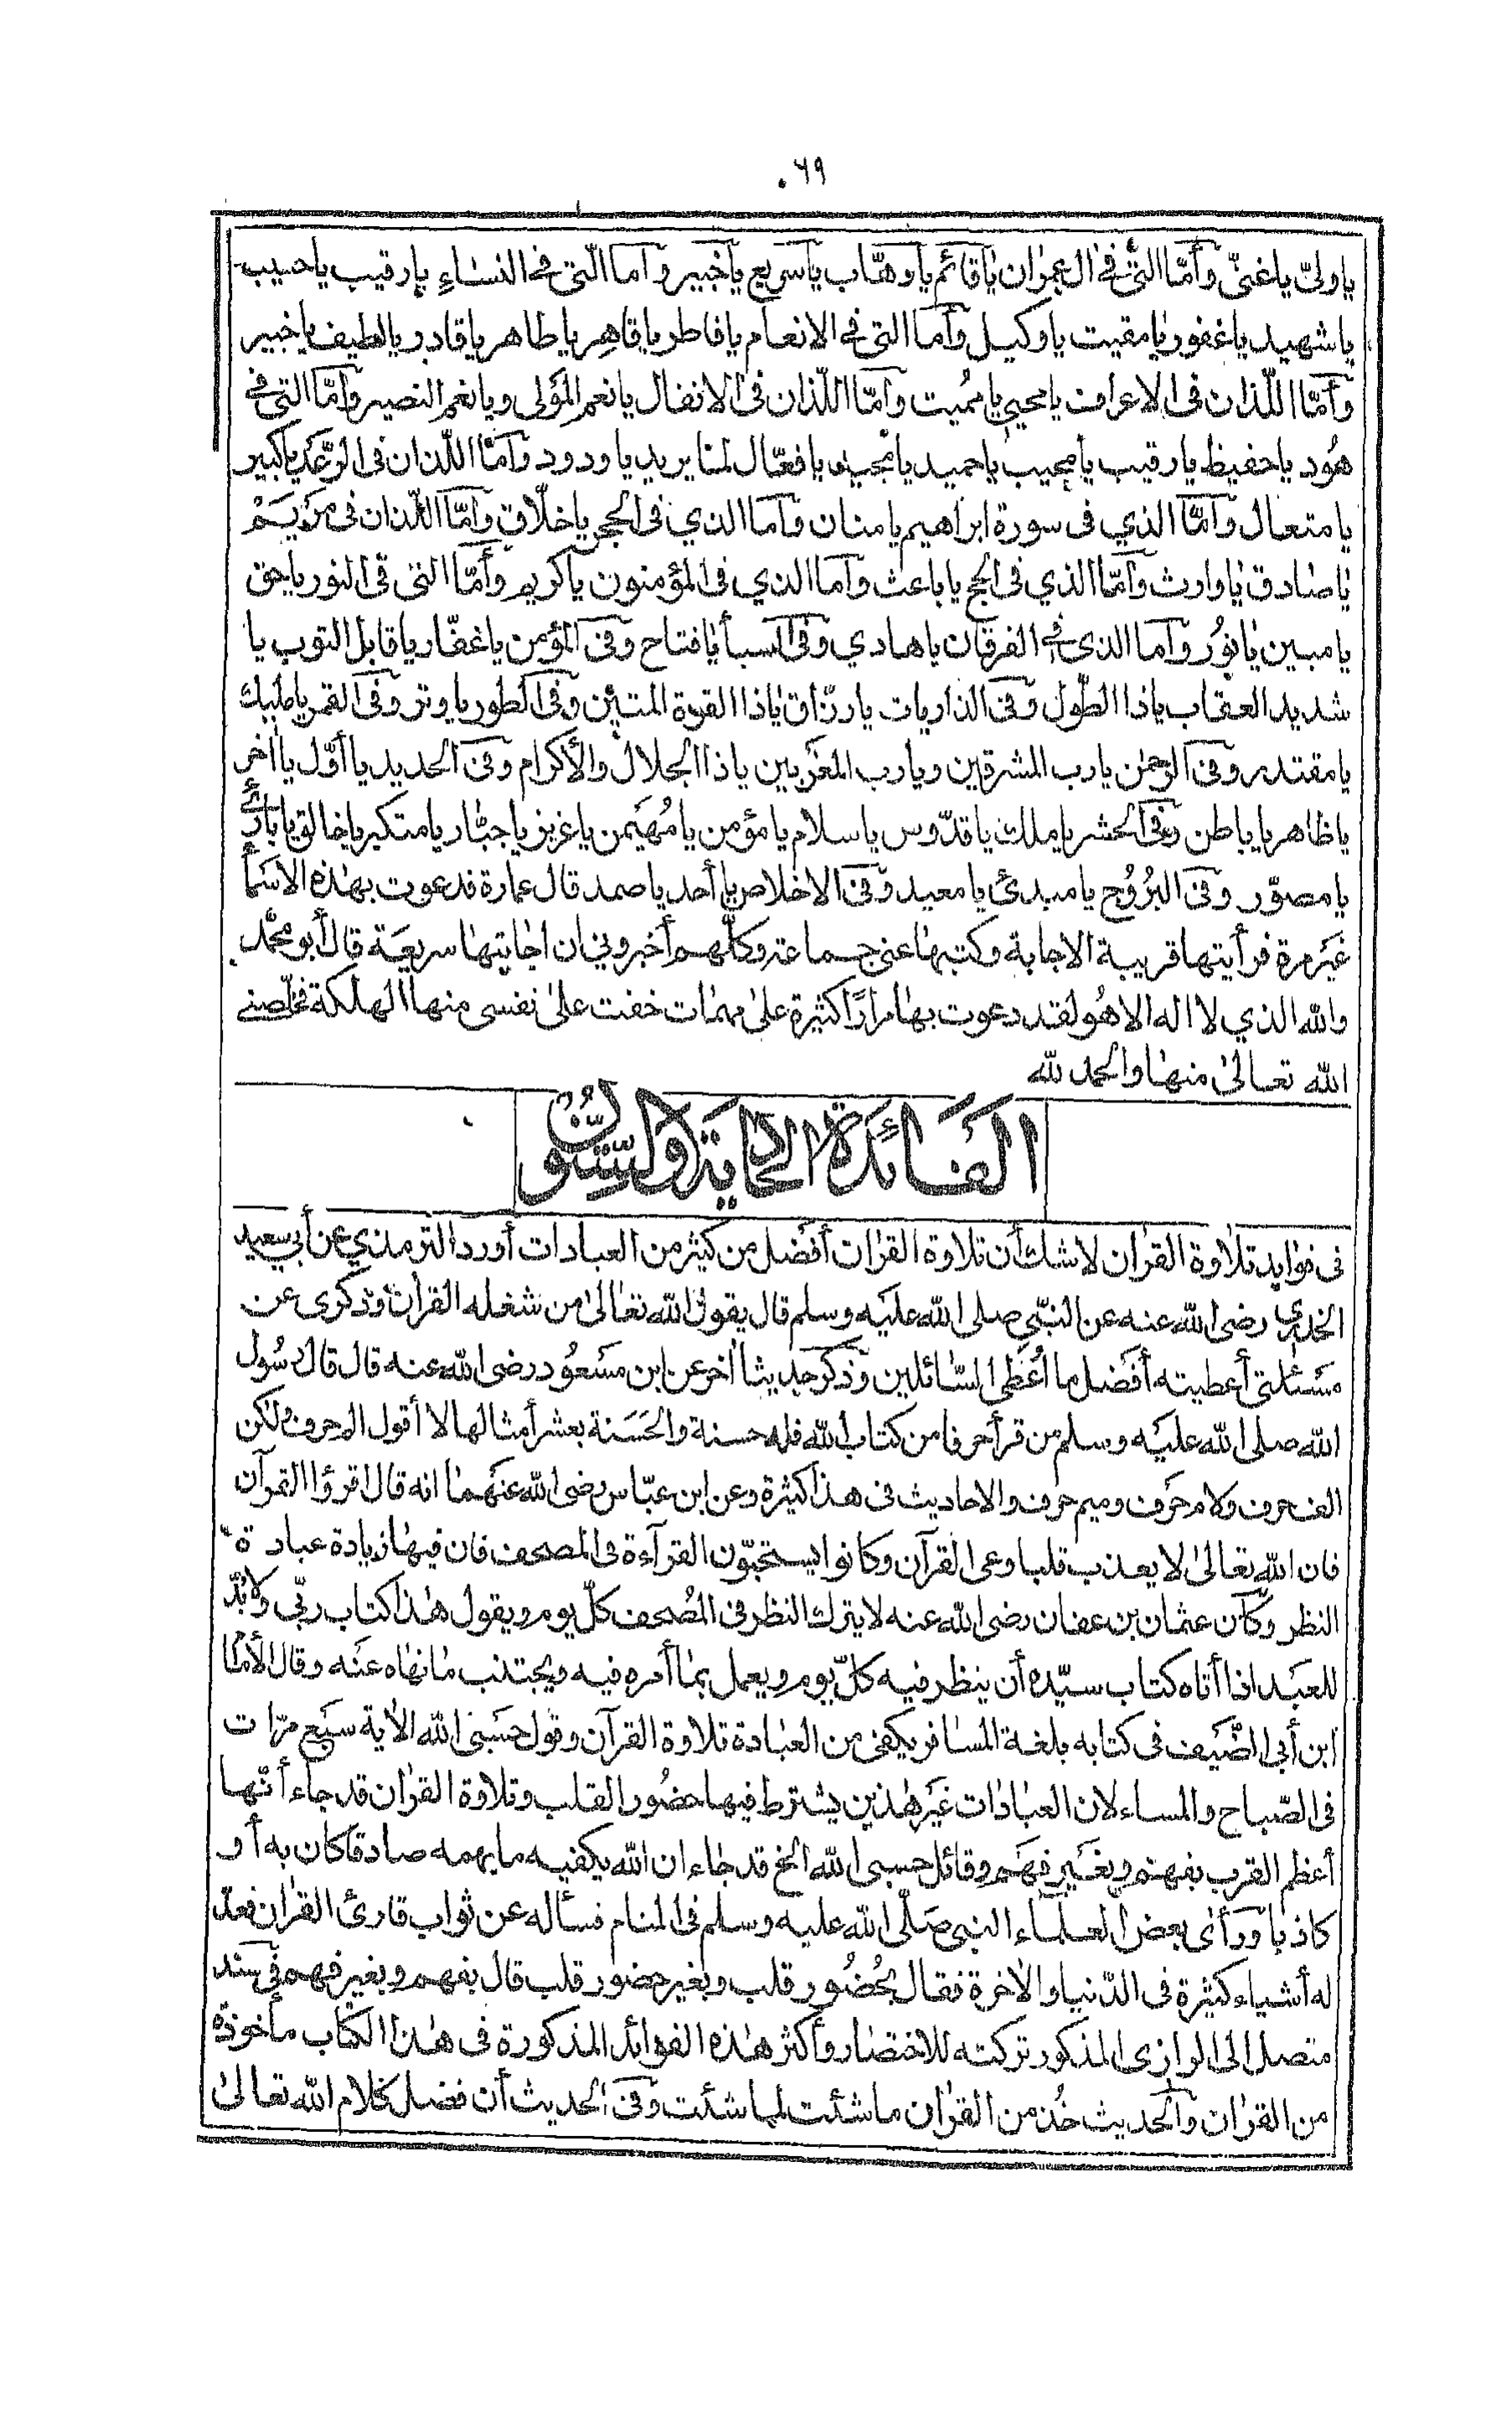 ٦٩.
يا ولىّ يا غنىّ وأمّا التى فى ال عمران يا قائم يا وهّاب يا سريع يا خبير وأما الّتى فى النساء يا رقيب يا حسيب
يا شهيد يا غفور يا مقيت يا وكيل وأما التى فى الانعام يا فاطر يا قاهر يا ظاهر يا قادر يا لطيف يا خبير
وأمّا اللّذان فى الاعراف يا محيي يا مُميت وأمّا اللّذان فى الانفال يا نعم المَوْلى ويا نعم النصير وأمّا التى فى
هُود يا حفيظ يا رقيب يا مجيب يا حميد يا مجيد يا فعّال لما يريد يا ودود وأمّا اللّذان فى الرّعد يا كبير
يا متعال وأمّا الذي فى سورة ابراهيم يا منان وأما الذي فى الحجر يا خلّاق وأمّا اللّذان فى مَرْيَم
يا صادق يا وارث وأمّا الذي فى الحج يا باعث وأما الذي فى المؤمنون يا كريم وأمّا التى فى النور يا حق
يا مبين يا نور وأما الذى فى الفرقان يا هادي وفى السبأ يا فتاح وفى المؤمن يا غفّار يا قابل التوب يا
شديد العقاب يا ذا الطّول وفى الذاريات يا رزّاق يا ذا القوة المتين وفى الطور يا وتر وفى القمر يا مليك
يا مقتدر وفى الرحمن يا رب المشرقين ويا رب المغربين يا ذا الجلال والأكرام وفى الحديد يا أوّل يا أخر
يا ظاهر يا باطن وفى الحشر يا ملك يا قدّوس يا سلام يا مؤمن يا مُهَيمن يا عزيز يا جبّار يا متكبر يا خالق يا بارئ
يا مصوّر وفى البُرُوج يا مبدئ يا معيد وفى الاخلاص يا أحد يا صمد قال عمارة فدعوت بهذه الاسَمأ
غَيَر مرة فرأيتها قريبة الاجابة وكتبها عنى جماعة وكلّهم أخبروني ان اجابتها سريعة قال أبو محمّد
والله الذي لا اله الا هُو لقد دعوت بها مرارًا كثيرة على مهمات خفت على نفسى منها الهلكة فخلّصنى
الله تعالى منها والحمد لله
الفائدة الحادية والستون
فى فوايد تلاوة القران لا شك أن تلاوة القران أفضل من كثير من العبادات أورد الترمذي عن أبي سعيد
الخدري رضى الله عنه عن النبّي صلى الله عليه وسلم قال يقول الله تعالى من شغله القران وذكرى عن
مسئلتى أعطيته أفضل ما أُعطى السّائلين وذكر حديثا أخر عن ابن مسَعوُد رضى الله عنه قال قال رسُول
الله صلى الله عليه وسلم من قرأ حرفا من كتاب الله فله حسنة والحَسَنة بعشر أمثالها لا أقول الم حرف ولكن
الف حرف ولام حرف وميم حرف والاحاديث فى هذا كثيرة وعن ابن عبّاس رضى الله عنهما انه قال اقرؤا القرآن
فان الله تعالى لا يعذب قلبا وعى القرآن وكانوا يستحبّون القرآءة فى المصحف فان فيها زيادة عبادة
النظر وكان عثمان بن عفان رضى الله عنه لا يترك النظر فى المُصحف كلّ يوم ويقول هذا كتاب ربّي ولابُدّ
للعَبد اذا أتاه كتاب سيّده أن ينظر فيه كلّ يوم ويعمل بما أمره فيه ويجتنب ما نهاه عنه وقال الأمام
ابن أبي الضّيف فى كتابه بلغة المسافر يكفى من العبادة تلاوة القرآن وقول حسَبى الله الأية سَبع مرّات
فى الصّباح والمساء لان العبادات غير هذين يشترط فيها حضُور القلب وتلاوة القران قد جاء أنّها
أعظم القرب بفهم وبغير فهم وقائل حسبى الله الخ قد جاء ان الله يكفيه ما يهمه صادقا كان به أو
كاذبا ورأى بعض العلماء النبى صلّى الله عليه وسلم فى المنام فسأله عن ثواب قارئ القران فعدّ
له أشياء كثيرة فى الدّنيا والأخرة فقال بحُضُور قلب وبغير حضور قلب قال بفهم وبغير فهم فى سند
متصل الى الرازى المذكور تركته للاختصار وأكثر هذه الفوائد المذكورة فى هذا الكتاب مأخوذة
من القران والحديث خُذ من القران ما شئت لما شئت وفى الحديث أن فضل كلام الله تعالى